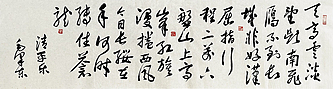 天高雲淡
望斷南飛
雁不到長
城非好漢
屈指行
程二萬六
盤山上高
峰紅旗
漫捲西風
今日長纓在
手何時
縛住蒼
龍
清平樂
毛澤東